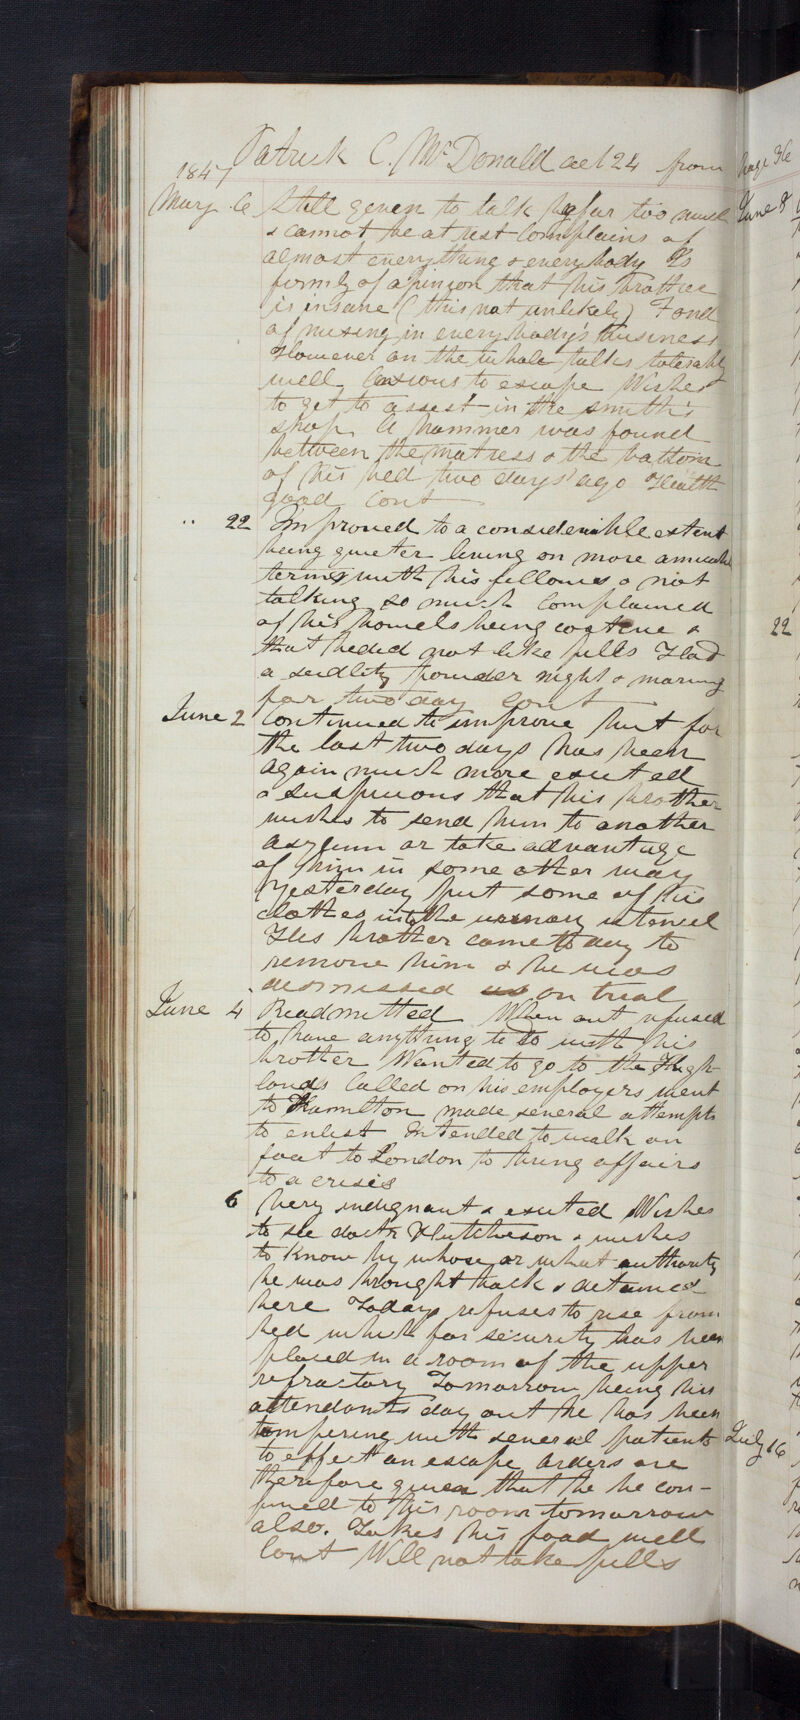 Patrick C. McDonald aet 24 from
1847
May 6 Still given to talk far too much
& cannot be at rest Complains of
almost everything & everybody Is
firmly of opinion that his brother
is insane (this not unlikely) Fond
of mixing in everybody's business
However on the whole talks tolerably
well. Anxious to escape Wishes
to get to assist in the smith's
shop. A hammer was found
between the matress & the bottom
of his bed two days ago Health
good Cont
" 22 Improved to a considerable extent
being quieter living on more amicable
terms with his fellows & not
talking so much Complained
of his bowels being costive &
that he did not like pills Had
a seidlitz powder night & morning
for two day Cont
June 2 Continued to improve but for
the last two days has been
again much more excited
& suspicious that his brother
wishes to send him to another
asylum or take advantage
of him in some other way
Yesterday put some of his
clothes into the urinary utensil
His brother came to day to
remove him & he was
dismissed on trial
June 4 Readmitted When out refused
to have anything to do with his
brother Wanted to go to the High-
lands Called on his employers went
to Hamilton made several attempts
to enlist Intended to walk on
foot to London to bring affairs
to a crisis
6 Very indignant & excited Wishes
to see doctr Hutcheson & wishes
to know by whose or what authority
he was brought back & detained
here Today refuses to rise from
bed which for security has been
placed in a room of the upper
refractory Tomorrow being his
attendants day out he has been
tampering with several patients
to effect an escape Orders are
therefore given that he be con-
fined to his room tomorrow
also. Takes his food well
Cont Will not take pills
page
June 8
22
July 16